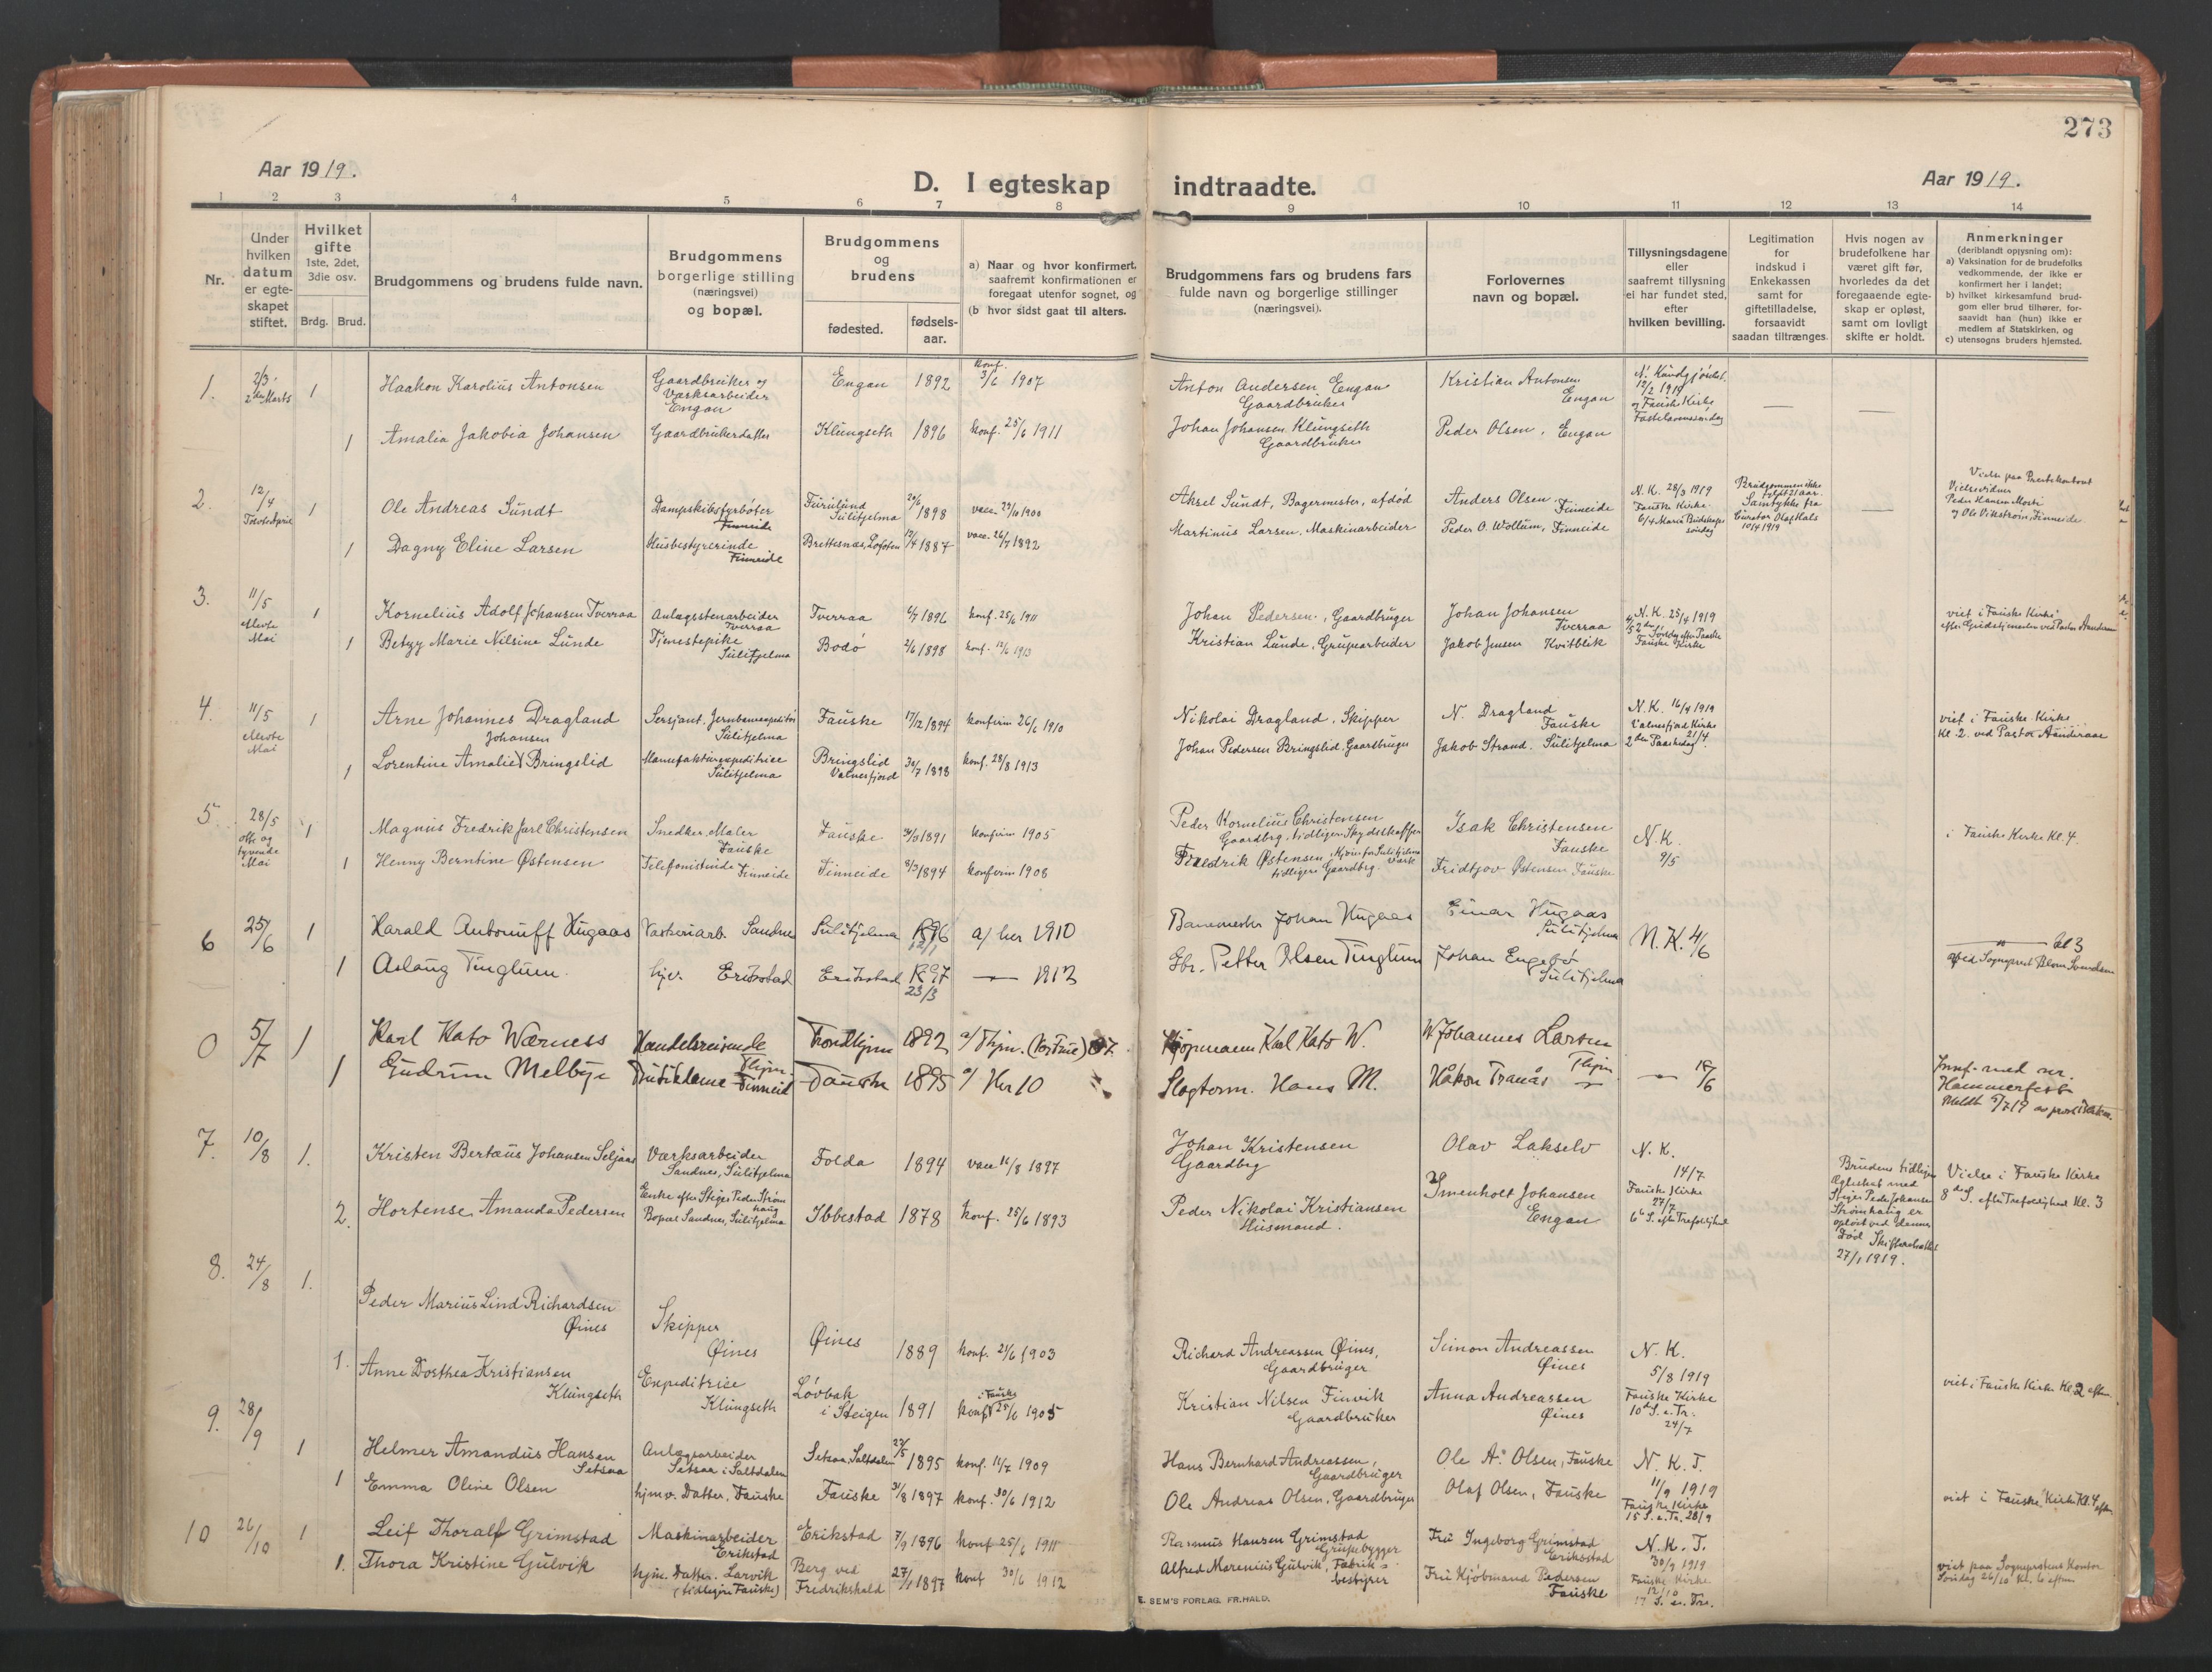 273
Aar 1919.
D. I egteskap indtraadte.
Aar 1919.
1 2 3 4 5 6 7 8 9 10 11 12 13 14
Nr.
Under hvilken datum er egteskapet stiftet.
Hvilket gifte
1ste, 2det, 3die osv.
Brdg. Brud.
Brudgommens og brudens fulde navn.
Brudgommens borgerlige stilling (næringsvei) og bopæl.
Brudgommens og brudens
fødested.
fødsels-aar.
a) Naar og hvor konfirmert, saafremt konfirmationen er foregaat utenfor sognet, og
(b hvor sidst gaat til alters.
Brudgommens fars og brudens fars fulde navn og borgerlige stillinger (næringsvei).
Forlovernes navn og bopæl.
Tillysningsdagene eller saafremt tillysning ei har fundet sted, efter hvilken bevilling.
Legitimation for indskud i Enkekassen samt for giftetilladelse, forsaavidt saadan tiltrænges.
Hvis nogen av brudefolkene har været gift før, hvorledes da det foregaaende egteskap er opløst, samt om lovligt skifte er holdt.
Anmerkninger
(deriblandt opjysning om):
a) Vaksination for de brudefolks vedkommende, der ikke er konfirmert her i landet;
b) hvilket kirkesamfund brudgom eller brud tilhører, forsaavidt han (hun) ikke er medlem af Statskirken, og
c) utensogns bruders hjemsted.
1. 2/3 2den Marts 1 Haakon Karolius Antonsen Gaardbruker og Værksarbeider Engan Engan 1892 konf. 3/6 1907 Anton Andersen Engan Gaardbruker Kristian Antonsen Engan N. Kundgjørelse 12/2 1919 og Fauske Kirke Fastelavnssøndag
1 Amalia Jakobia Johansen Gaardbrukerdatter Klungseth 1896 konf. 25/6 1911 Johan Johansen Klungseth Gaardbruker Peder Olsen, Engan
2. 12/4 Tolvte April 1 Ole Andreas Sundt Dampskibsfyrbøter Finneide Furulund Sulitjelma 20/6 1898 vacc. 1900 Aksel Sundt, Bagermester, afdød Anders Olsen, Finneide N.K. 28/3 1919 Fauske Kirke 6/4 Maria Budskaps søndag Brudgommen ikke fyldt 21 aar. Samtykke fra Curator Olaf Hals 10/4 1919 Vielse paa Prestekontoret Vielsesvidner Peder Hansen Mosti og Ole Vikstrøm, Finneide
1 Dagny Eline Larsen Husbestyrerinde Finneide Brettesnæs, Lofoten 12/4 1887 vacc. 26/7 1892 Martinus Larsen, Maskinarbeider Peder O. Wollum, Finneide
3. 11/5 ellevte Mai 1 Kornelius Adolf Johansen Tverraa Anlægsstenarbeider Tverraa Tverraa 6/7 1896 konf. 25/6 1911 Johan Pedersen, Gaardbruger Johan Johansen Tverraa N.K. 25/4 1919 4/5 2den Søndag efter Paaske Fauske Kirke viet i Fauske Kirke efter Gudstjenesten ved Pastor Aanderaa
1 Betzy Marie Nilsine Lunde Tjenestepike Sulitjelma Bodø 2/6 1898 konf. 1913 Kristian Lunde, Grubearbeider Jakob Jensen Kvitblik
4. 11/5 ellevte Mai 1 Arne Johannes Dragland Sersjant, Jernbaneexpeditør Sulitjelma Fauske 17/12 1894 konfirm 26/6 1910 Nikolai Dragland, Skipper N. Dragland Fauske N.K. 16/4 1919 Valnesfjord Kirke 2den Paaskedag 21/4. viet i Fauske Kirke Kl. 2. ved Pastor Aanderaa
1 Lorentine Amalie Johansen Bringslid Manufakturexpeditrice Sulitjelma Bringslid Valnesfjord 30/7 1898 konf. 28/8 1913 Johan Pedersen Bringslid, Gaardbruger Jakob Strand, Sulitjelma
5. 28/5 otte og tyvende Mai 1 Magnus Fredrik Jarl Christensen Snedker, Maler Fauske Fauske 1891 konfirm 1905 Peder Kornelius Christensen Gaardbrg. tidligere Skydsskaffer Isak Christensen Fauske N.K. 9/5 i Fauske Kirke Kl. 4.
1 Henny Berntine Østensen Telefonistinde Finneide Finneide 8/3 1894 konfirm 1908 Fredrik Østensen, Kjører for Sulitjelma Værk tidligere Gaardbrg. Fridtjov Østensen Fauske
6 25/6 1 Harald Antonuff Hugaas Vaskeriarb. Sandnes Sulitjelma 1896 12/1 a/ her 1910 Banemester Johan Hugaas Einar Hugaas Sulitjelma N.K. 4/6 Kl 3 ved Sogneprest Blom Svendsen
1 Aslaug Tinglum. hjv. Erikstad Erikstad 1897 23/3 1912 Gbr. Petter Olsen Tinglum Johan Engebø Sulitjelma
0 5/7 1 Karl Kato Wærness Handelsreisende Thjm. Trondhjem 1892 a/ Thjm. (Vor Frue) 07. Kjøpmann Karl Kato W. Johannes Larsen Thjm. 18/6 Innf. med nr. Hammerfest
1 Gudrun Melbye Butikdame Finneid Fauske 1895 a/ Her 10 Slagterm. Hans M. Håkon Tranås
7. 10/8 1. Kristen Bertæus Johansen Seljaas Værksarbeider Sandnes, Sulitjelma Folda 1894 vacc 11/8 1897 Johan Kristensen Gaardbrg Olav Lakselv N.K. 14/7 Fauske Kirke 27/7 6te S. efter Trefoldighed Brudens tidligere Ægteskab med Stiger Peder Johansen Strømhaug er opløst ved dennes Død Skifteretsattest 27/1 1919. Vielse i Fauske Kirke 8de S. efter Trefoldighed Kl. 3
2. Hortense Amanda Pedersen Enke efter Stiger Peder Strømhaug Bopæl Sandnes, Sulitjelma Ibbestad 1878 konf. 25/6 1893 Peder Nikolai Kristiansen Husmand. Imenholt Johansen Engan
8. 24/8 1. Peder Marius Lind Richardsen Øines Skipper Øines Øines 1889 konf. 21/6 1903 Richard Andreassen Øines, Gaardbruger Simon Andreassen Øines N.K. 5/8 1919 Fauske Kirke 10de S. e. Tr. 24/7 viet i Fauske Kirke Kl. 2 eftm.
1. Anne Dorthea Kristiansen Klungseth Expeditrice Klungseth Løvbak i Steigen 1891 konf. i Fauske 25/6 1905 Kristian Nilsen Finvik Gaardbruker Anna Andreassen Øines
9. 28/9 1 Helmer Amandus Hansen Setsaa Anlægsarbeider Setsaa i Saltdalen Setsaa, Saltdalen 27/5 1895 konf. 11/7 1909 Hans Bernhard Andreassen, Gaardbruger Ole A. Olsen, Fauske N.K.T. 11/9 1919 Fauske Kirke 15 S. e. Tr. 28/9 viet i Fauske Kirke Kl. 4 eftm
1 Emma Oline Olsen hjmv. Datter, Fauske Fauske 31/8 1897 konf. 30/6 1912 Ole Andreas Olsen, Gaardbruger Olaf Olsen, Fauske
10 26/10 1 Leif Thoralf Grimstad Maskinarbeider Erikstad Erikstad 7/9 1896 konf 25/6 1911 Rasmus Hansen Grimstad Grubebygger Fru Ingeborg Grimstad Eriksstad N.K.T. 30/9 1919 Fauske Kirke 12/10 17 S. e. Tre. viet paa Sogneprestens Kontor Søndag 26/10 Kl. 6 eftm
1. Thora Kristine Gulvik hjm. Datter. Larvik (tidligere Fauske) Berg ved Fredrikshald 27/1 1897 konf 30/6 1912 Alfred Marenius Gulvik, Fabrikbestyrer Fru Kjøbmand Pedersen Fauske
E. SEM'S FORLAG, FR.HALD.